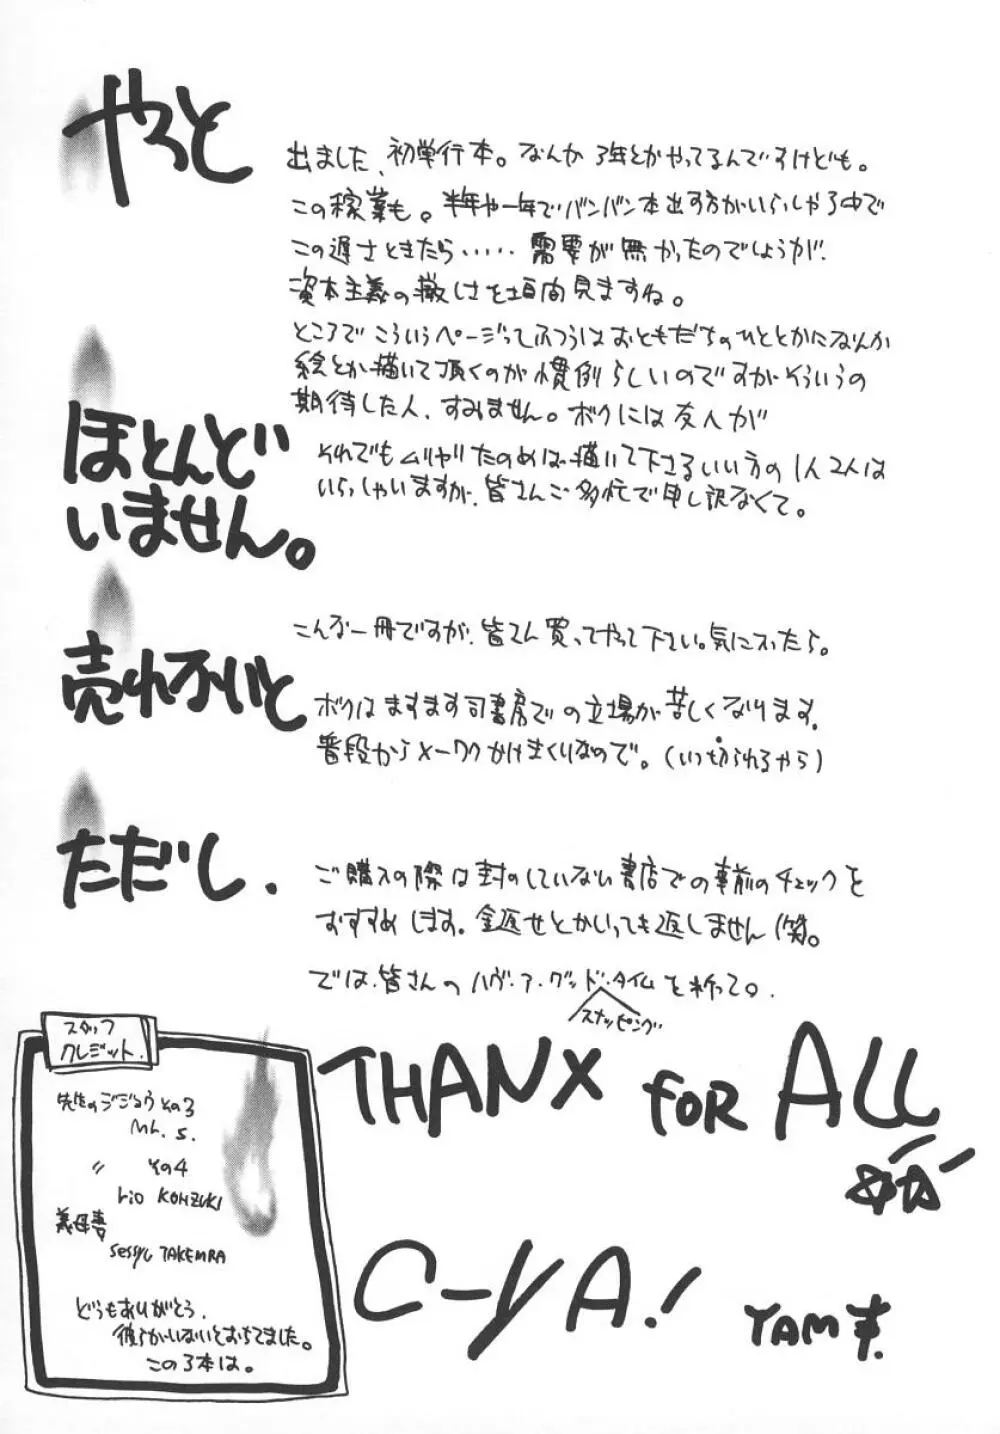 やっと
出ました、初単行本。なんか3年とかやってるんですけども。
この稼業も。半年や一年でバンバン本出す方がいらっしゃる中で
この遅さときたら……需要が無かったのでしょうが、
資本主義の厳しさを垣間見ますね。
ところでこういうページってふつうはおともだちのひととかになんか
絵とか描いて頂くのが慣例らしいのですがそういうの
期待した人、すみません。ボクには友人が
ほとんど
いません。
それでもムリヤリたのめば描いて下さるいい方の1人2人は
いらっしゃいますが、皆さんご多忙で申し訳なくて。
こんな一冊ですが、皆さん買ってやって下さい。気に入ったら。
売れないと
ボクはますます司書房での立場が苦しくなります。
普段からメーワクかけまくりなので。(いつ切られるやら)
ただし、
ご購入の際は封のしていない書店での事前のチェックを
おすすめします。金返せとかいっても返しません(笑)。
では、皆さんのハヴ・ア・グッド・タイムを祈って。
スナッピング
THANX FOR ALL
C-YA!
YAM
スタッフ
クレジット.
先生のジジョウ その3
Mr. S.
〃 その4
rio KOHZUKI
義母妻
sessyu TAKEMRA
どうもありがとう.
彼らがいないとおちてました。
この3本は。